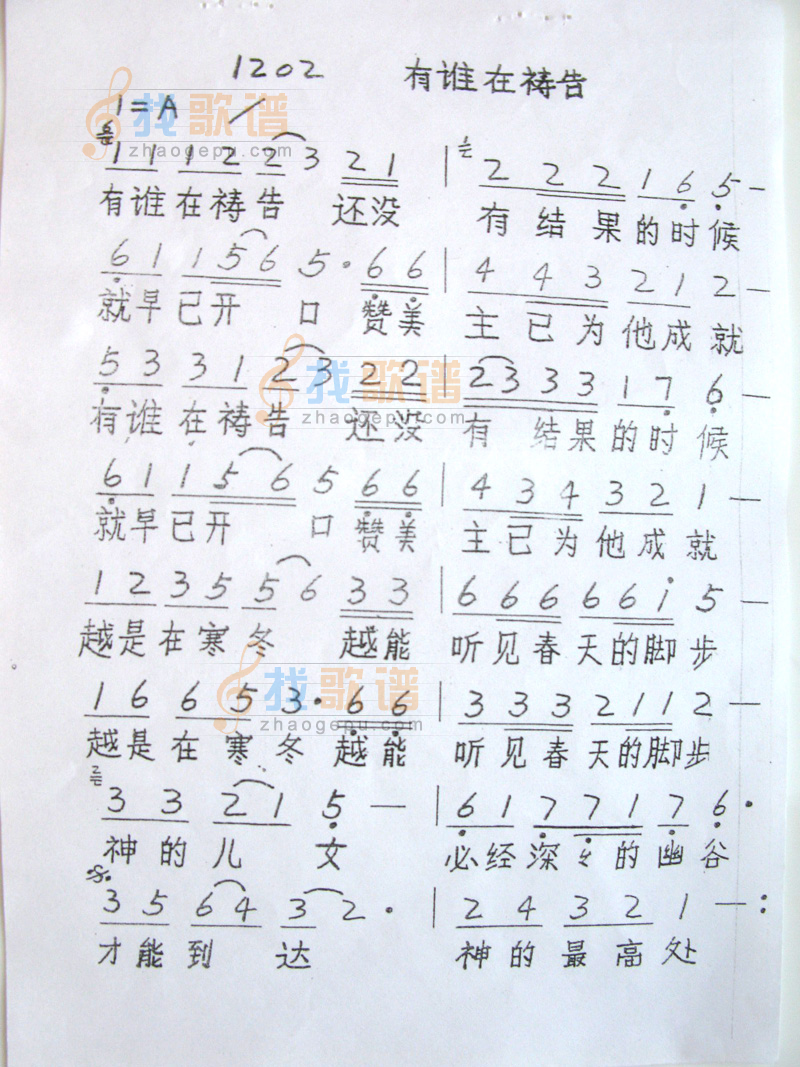 1202 有谁在祷告
1=A
1 1 1 2 2 3 2 1 | 2 2 2 1 6 5 —
有谁在祷告 还没 有结果的时候
6 1 1 5 6 5 · 6 6 | 4 4 3 2 1 2 —
就早已开口 赞美 主已为他成就
5 3 3 1 2 3 2 2 | 2 3 3 3 1 7 6 —
有谁在祷告 还没 有结果的时候
6 1 1 5 6 5 6 6 | 4 3 4 3 2 1 —
就早已开口赞美 主已为他成就
1 2 3 5 5 6 3 3 | 6 6 6 6 6 1 5 —
越是在寒冬 越能 听见春天的脚步
1 6 6 5 3 · 6 6 | 3 3 3 2 1 1 2 —
越是在寒冬越能 听见春天的脚步
3 3 2 1 5 — | 6 1 7 7 1 7 6 ·
神的儿女 必经深々的幽谷
3 5 6 4 3 2 · | 2 4 3 2 1 — :
才能到达 神的最高处
找歌谱
zhaogepu.com
找歌谱
zhaogepu.com
找歌谱
zhaogepu.com